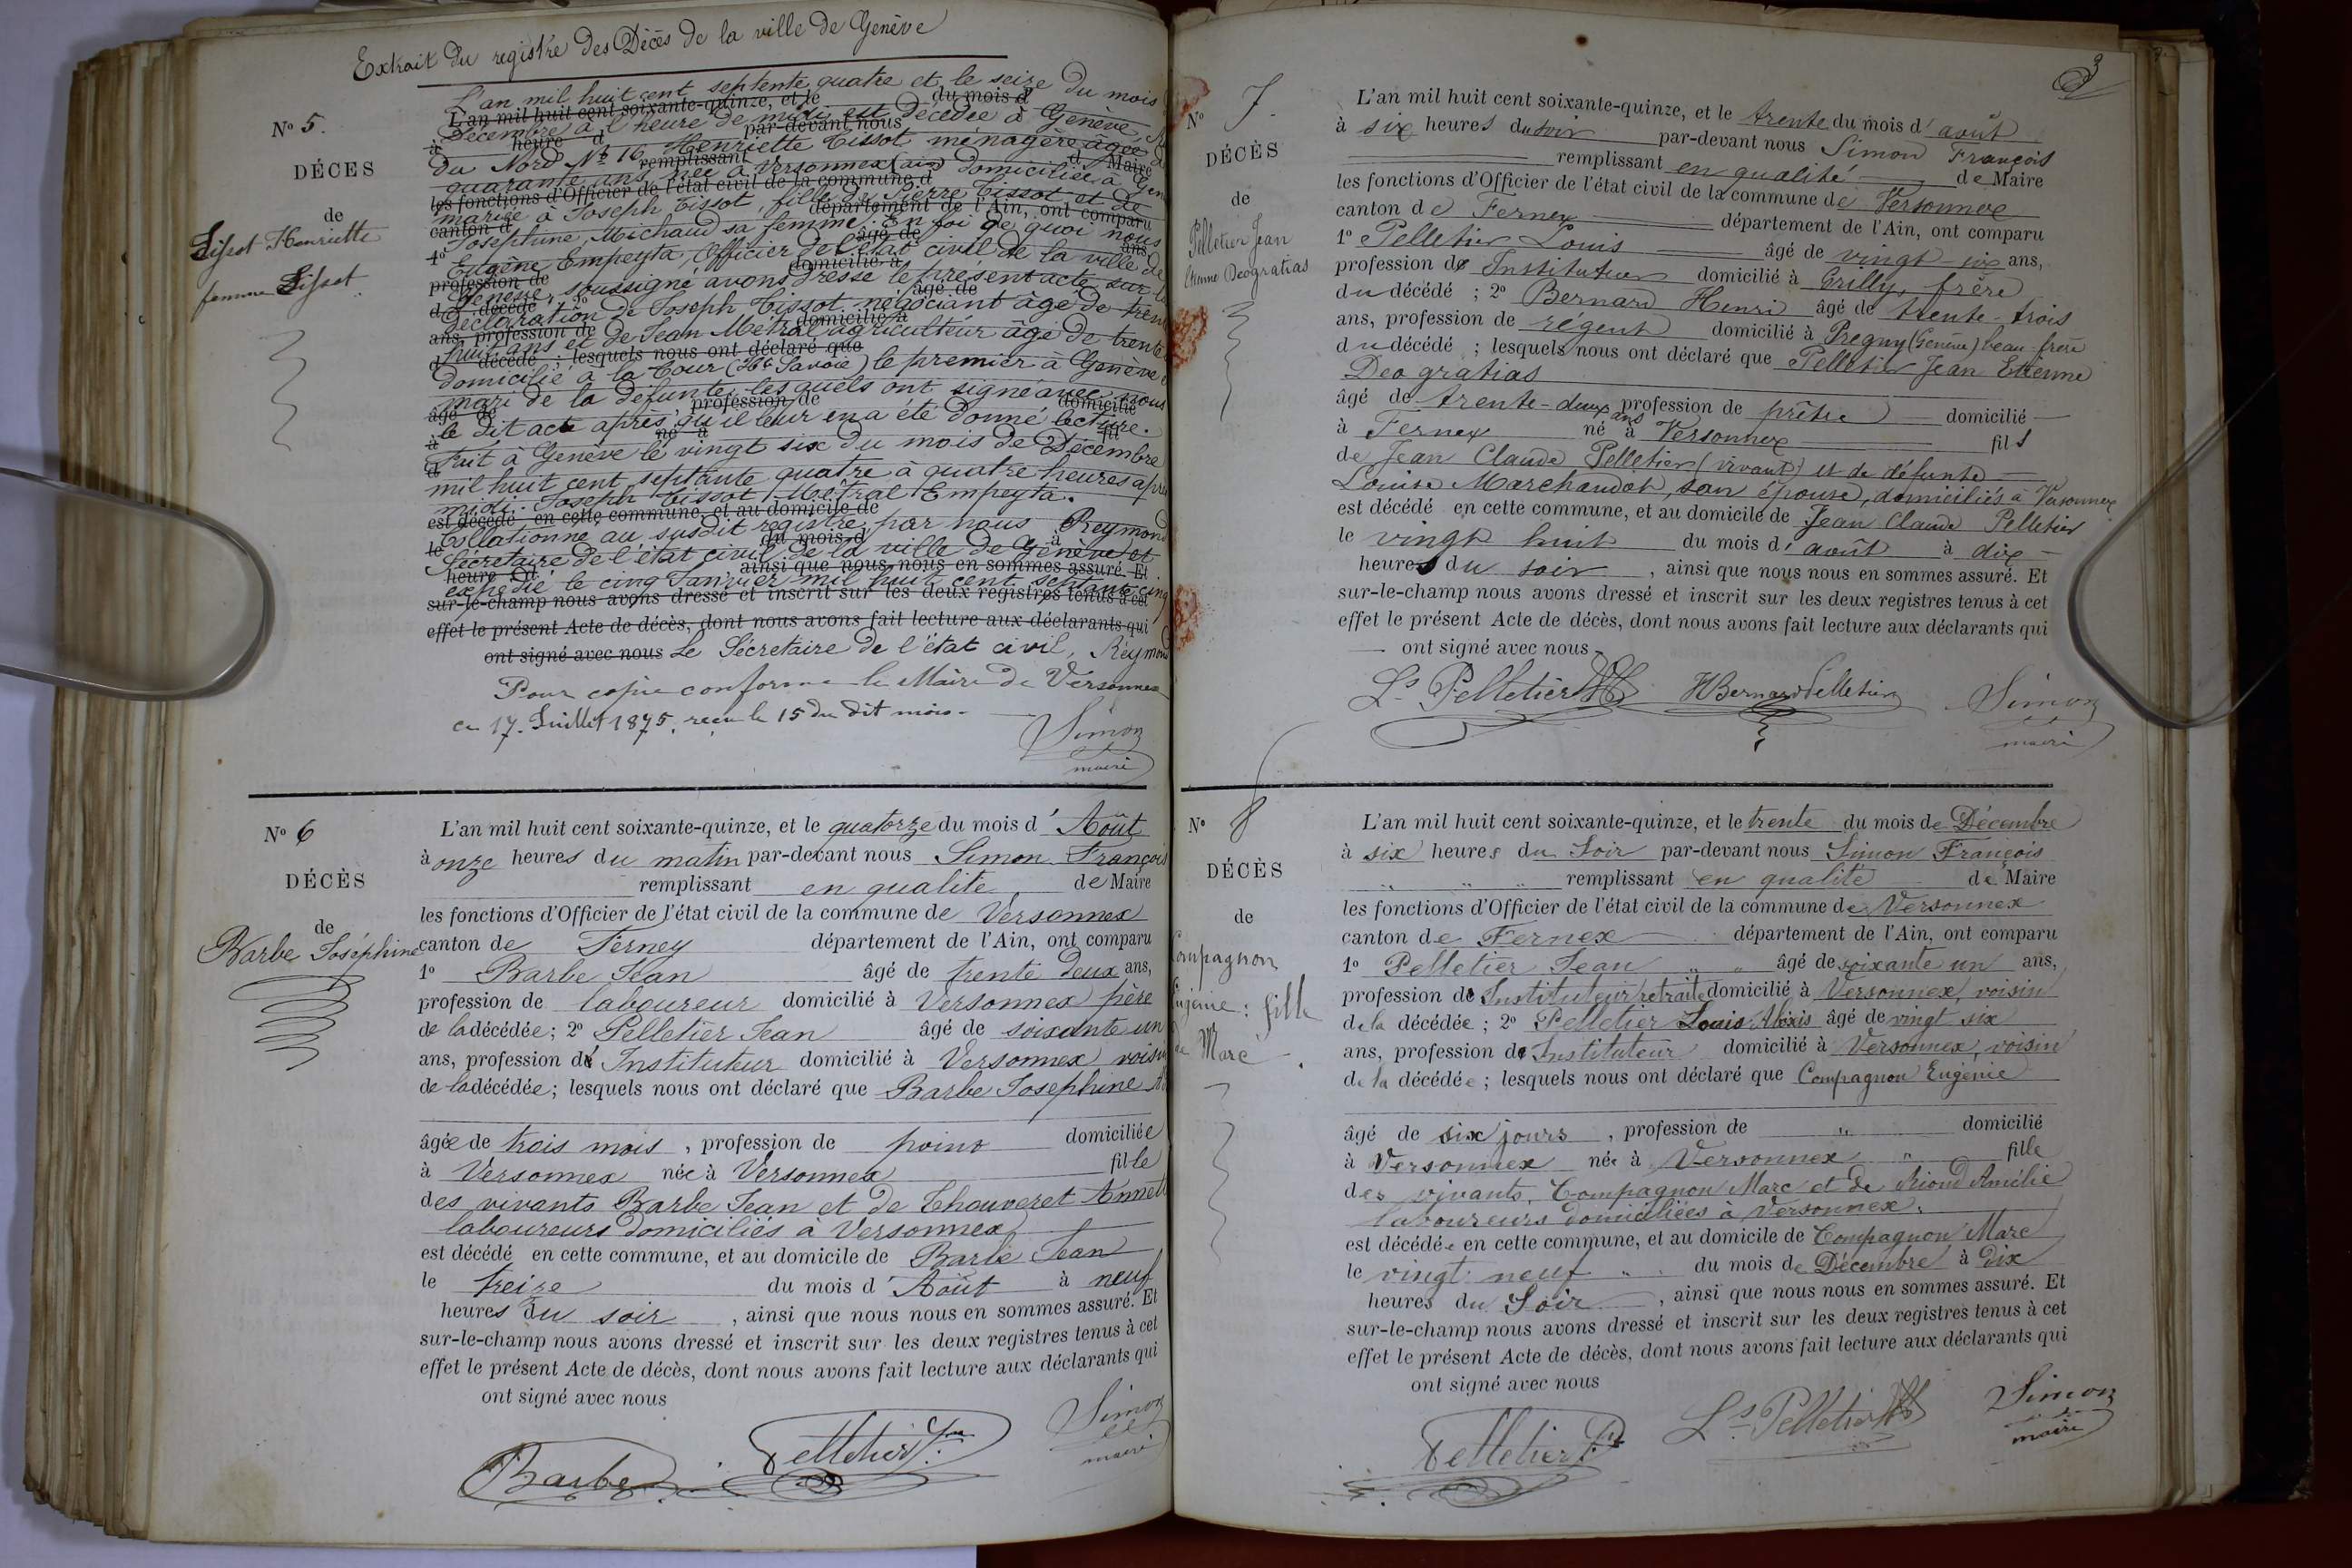 Extrait du registre des Décès de la ville de Genève
N° 5.
DÉCES
de
Tissot Henriette
femme Tissot
L'an mil huit cent septente quatre et le seize du mois
L'an mil huit cent soixante-quinze, et le du mois d
Décembre à l'heure de midi est décédée à Genève
à heure d par-devant nous
du Nord N° 16 Henriette Tissot ménagère âgée de
remplissant d Maire
quarante ans, née à Versonnex (ain) domiciliée à
les fonctions d'Officier de l'état civil de la commune d
mariée à Joseph Tissot, fille de Pierre Tissot et de
canton d département de l'Ain, ont comparu
Joséphine Michaud sa femme. En foi de quoi nous
1° âgé de ans
Eugène Empeyta, Officier de l'état civil de la ville de
profession de domicilié à
Genève, soussigné avons dressé le présent acte sur la
d décédé ; 2° âgé de
déclaration de Joseph Tissot négociant âgé de trente
ans, profession de domicilié à
huit ans et de Jean Métral agriculteur âgé de trente
d décédé ; lesquels nous ont déclaré que
domicilié à la Tour (Hte Savoie) le premier à Genève
mari de la défunte, lesquels ont signé avec nous
âgé de , profession de domicilié
le dit acte après qu'il leur en a été donné lecture.
à né à fil
Fait à Genève le vingt six du mois de Décembre
d
mil huit cent septante quatre à quatre heures après
midi. Joseph Tissot Métral Empeyta.
est décédé en cette commune, et au domicile de
Collationné au susdit registre par nous Reymond
le du mois d à
Secrétaire de l'état civil de la ville de Genève et
heure d ainsi que nous nous en sommes assuré. Et
expédié le cinq Janvier mil huit cent septante cinq
sur-le-champ nous avons dressé et inscrit sur les deux registres tenus à cet
effet le présent Acte de décès, dont nous avons fait lecture aux déclarants qui
ont signé avec nous Le Sécretaire de l'état civil, Reymond
Pour copie conforme le Maire de Versonnex
ce 17 Juillet 1875, reçu le 15 du dit mois.
Simon
maire
N° 6
DÉCÈS
de
Barbe Joséphine
L'an mil huit cent soixante-quinze, et le quatorze du mois d'Août
à onze heures du matin par-devant nous Simon François
remplissant en qualité de Maire
les fonctions d'Officier de l'état civil de la commune de Versonnex
canton de Ferney département de l'Ain, ont comparu
1° Barbe Jean âgé de trente deux ans,
profession de laboureur domicilié à Versonnex père
de la décédée ; 2° Pelletier Jean âgé de soixante un
ans, profession d' Instituteur domicilié à Versonnex voisin
de la décédée ; lesquels nous ont déclaré que Barbe Josephine
âgée de trois mois , profession de point domiciliée
à Versonnex née à Versonnex fille
des vivants Barbe Jean et de Chouveret
laboureurs domiciliés à Versonnex
est décédé en cette commune, et au domicile de Barbe Jean
le treize du mois d'Août à neuf
heures du soir , ainsi que nous nous en sommes assuré. Et
sur-le-champ nous avons dressé et inscrit sur les deux registres tenus à cet
effet le présent Acte de décès, dont nous avons fait lecture aux déclarants qui
ont signé avec nous
Barbe Pelletier Simon
maire
3
N° 7.
DÉCÈS
de
Pelletier Jean
Etienne Deogratias
L'an mil huit cent soixante-quinze, et le trente du mois d'août
à six heures du soir par-devant nous Simon François
remplissant en qualité de Maire
les fonctions d'Officier de l'état civil de la commune de Versonnex
canton de Fernex département de l'Ain, ont comparu
1° Pelletier Louis âgé de vingt-six ans,
profession d' Instituteur domicilié à Grilly, frère
du décédé ; 2° Bernard Henri âgé de trente-trois
ans, profession de régent domicilié à Pregny (Genève) beau-frère
du décédé ; lesquels nous ont déclaré que Pelletier Jean Etienne
Deogratias
âgé de trente-deux ans profession de prêtre domicilié
à Fernex né à Versonnex fils
de Jean Claude Pelletier (vivant) et de défunte
Louise Marchandot, son épouse, domiciliés à Versonnex
est décédé en cette commune, et au domicile de Jean Claude Pelletier
le vingt huit du mois d'août à dix
heures du soir , ainsi que nous nous en sommes assuré. Et
sur-le-champ nous avons dressé et inscrit sur les deux registres tenus à cet
effet le présent Acte de décès, dont nous avons fait lecture aux déclarants qui
ont signé avec nous
Ls Pelletier HBernard Pelletier Simon
maire
N° 8
DÉCÈS
de
Compagnon
Eugénie : fille
de Marc
L'an mil huit cent soixante-quinze, et le trente du mois de Décembre
à six heures du Soir par-devant nous Simon François
remplissant en qualité de Maire
les fonctions d'Officier de l'état civil de la commune de Versonnex
canton de Fernex département de l'Ain, ont comparu
1° Pelletier Jean âgé de soixante un ans,
profession d' Instituteur retraité domicilié à Versonnex, voisin
de la décédée ; 2° Pelletier Louis Alexis âgé de vingt six
ans, profession d' Instituteur domicilié à Versonnex, voisin
de la décédée ; lesquels nous ont déclaré que Compagnon Eugénie
âgé de six jours , profession de " domicilié
à Versonnex née à Versonnex " fille
des vivants, Compagnon Marc et de Amélie
laboureurs domiciliées à Versonnex.
est décédée en cette commune, et au domicile de Compagnon Marc
le vingt neuf du mois de Décembre à Dix
heures du Soir , ainsi que nous nous en sommes assuré. Et
sur-le-champ nous avons dressé et inscrit sur les deux registres tenus à cet
effet le présent Acte de décès, dont nous avons fait lecture aux déclarants qui
ont signé avec nous
Pelletier Ls Pelletier Simon
maire